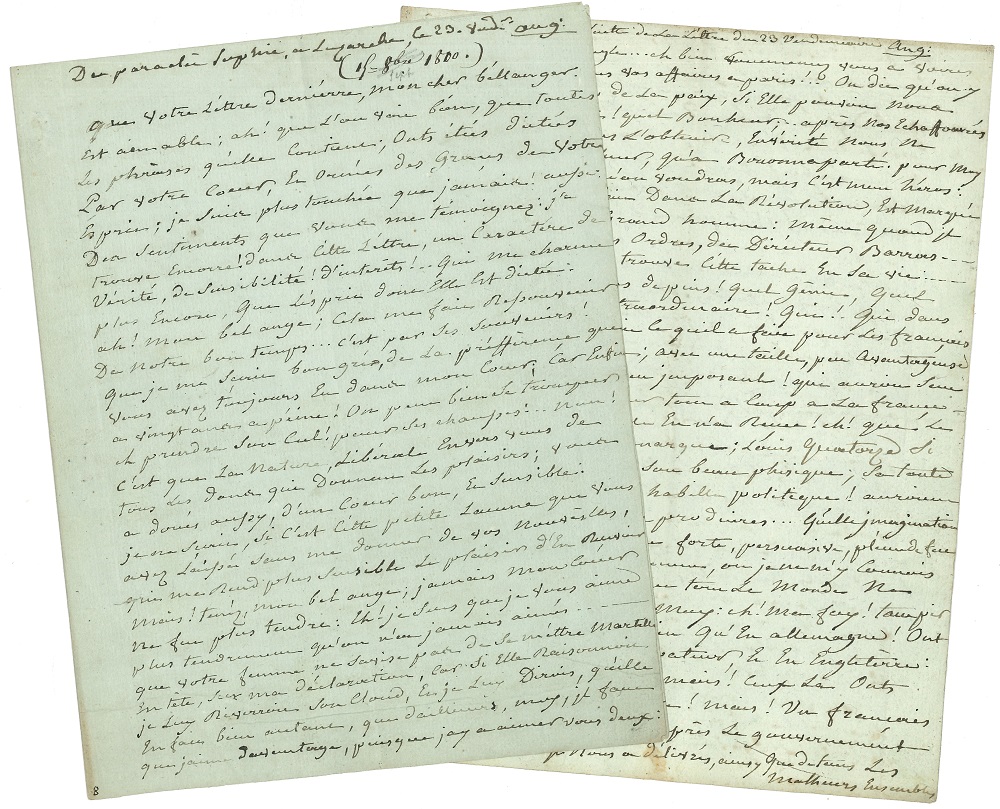 Du paraclet Sophie, a Luzarche, le 23. Vend.re ang:
(15 8bre 1800.)
que votre Léttre derniérre, mon cher béllanger
Est aimable; ah! que L'on voie bién, que toutes
Les phrases qu'elle Contient, Onts étées dictées
Par votre Coeur, En Ornées des Graces de votre
Esprit; je suis plus touchée que jamais! aussi
Des Sentiments que vous me témoignez: je
trouve Encorre! dans Cette Léttre, un Caractére de
Vérité, de Sensibilité! d'interêts!.. Qui me charment
plus Encore, Que L'ésprit dont Elle Est dictée:
ah! Mon bel ange; Cela me fait Ressouvenir
De Notre bon temps... c'est par Ses Souvenirs!
Que je me Scais bon gré, de La préfférence que
vous avez toujours Eu dans mon Coeur; Car Enfin
a vingt ans a peine! On peut bien Se tromper
Et prendre Son Cul! pour Ses chausses!... Non!
C'est que La Nature, Libérale Envers vous de
tous Les dons qui Donnent Les plaisirs; vous
a doués aussy, d'un Coeur bon, En Sensible:
je ne Scais, Si C'est Cétte petite Lacune que vous
avez Laissée Sans me donner de vos Nouvélles,
qui me Rend plus Sensible Le plaisir d'En Recevoir
Mais! tenez, mon bel ange, jamais mon Coeur
Ne fut plus tendre: Eh! je Sens que je vous aime
plus tendrement qu'on n'en jamais aimé...
que votre femme ne Savise pas de Se méttre Martelle
En tête, Sur ma déclaration, Car Si Elle Raisonnoit,
je Luy Riverrois Son Cloud, En je Luy Dirois, qu'élle
En fait bien autant, que d'ailleurs, moy, je fais
que j'aime davantage, puisque j'ay a aimer vous deux:
8
Suite de La Léttre du 23 Vendemiaire Ang:
eh bien vous a voires
vos affaires a paris!? On dit qu'on y
de La paix, Si Elle pouvoit Nous
! quel Bonheur: après Nos Echafourées
L'obtenir, En vérité Nous Ne
qu'a Buonnaparté. pour Moy
voudras, mais c'est mon héros:
Dans La Révolution, Est Marqué
Grand homme: Même quand je
Ordres, du Dirécteur Barros---
trouver Cétte tache En Sa vie...
depuis! quel Génie, Quel
traordinaire! Qui!! Qui, dans
ce qu'il a fait pour Les francois
; avec une taille, peu Avantageuse
imposant! que auroit Servi
tout a Coup a La france---
En n'a Reusi! ch! que Le
marque; Louis Quatorze Si
Son beau phisique; Sa toute
habille politique! auroient
produires... Qu'elle jmagination
forte, persuasive, pleine de feu
ou je ne m'y Connois
tout Le Monde Ne
Muy: ch! Ma foy! tampis
Qu'En allemagne! Ont
En Angléterre:
mais! Ceux La Onts
! mais! Un francois
après Le gouvernement
Nous a délivrés, aussy Que de tous Les
Malheurs Ensembles